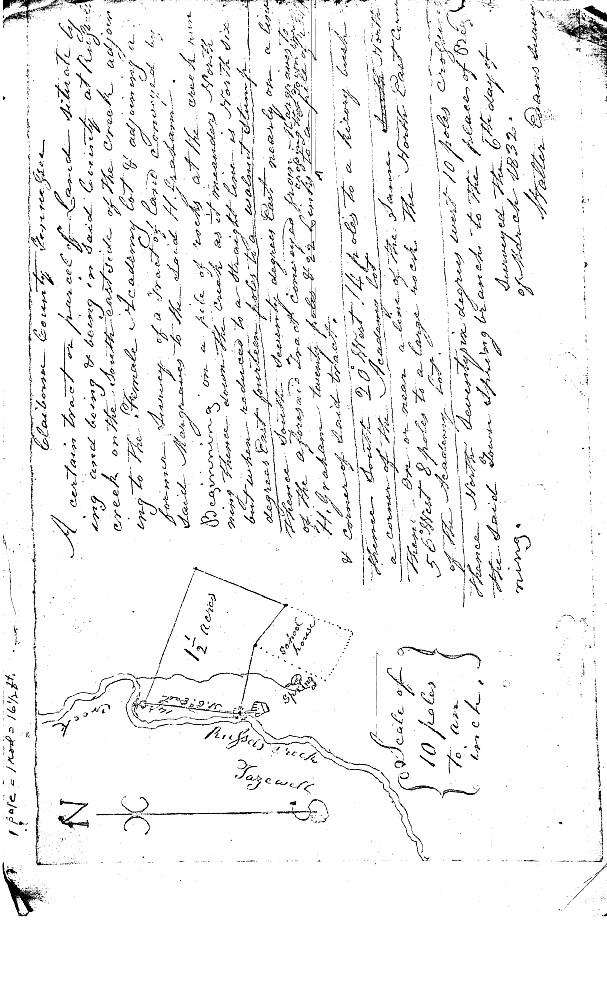 1 pole = 1 rod = 16½ ft.
Claiborne County Tennessee
A certain tract or parcel of Land situate ly
ing and being & being in said County at Russells
creek on the South east side of the creek adjoin
ing to the Female Academy lot & adjoining a
former Survey of a Tract of land conveyed by
said Margraves to the said H. Graham.
Beginning on a pile of rocks at the creek run
ning thence down the creek as it meanders North
but when reduced to a straight line is North six
degrees East fourteen poles to a walnut stump
thence South seventy degrees East nearly on a line
of the aforesaid tract conveyed from Margraves to
H. Graham twenty poles & 22 links to a
& corner of said tract,
thence South 20° West 14 poles to a hicory bush
a corner of the Academy lot
then on or near a line of the same South North
56 West 8 poles to a large rock the North East corn
of the Academy lot.
thence North Seventy six degrees west 10 poles crossing
the said Town Spring branch to the places of Beg
ning.
Surveyed the 6th day of
of March 1832.
Walter Evans
N
Creek
1½ acres
School
house
Spring
Russels creek
Tazewell
S
Scale of
10 poles
to an
inch.